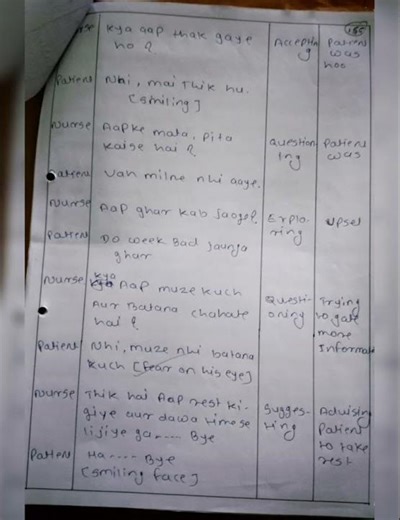 165
Nurse Kya aap thak gaye Accepting Patient
ho ? was
hoo
Patient Nhi, mai Thik hu.
[smiling]
Nurse Aap ke mata, pita Question Patient
kaise hai ? ing was
Patient Vah milne nhi aaye.
Nurse Aap ghar kab jaoge?. Explo- Upset
Patient Do week Bad jaunga ring
ghar
Nurse kya Aap muze kuch Questi- Trying
Aur Batana chahate oning to gate
hai ? more
Patient Nhi, muze nhi batana Informat
kuch [fear on his eye]
Nurse Thik hai Aap rest ki- Sugges- Advising
giye aur dawa time se ting Patient
lijiye ga---- Bye to take
Patient Ha---- Bye rest
[smiling face]